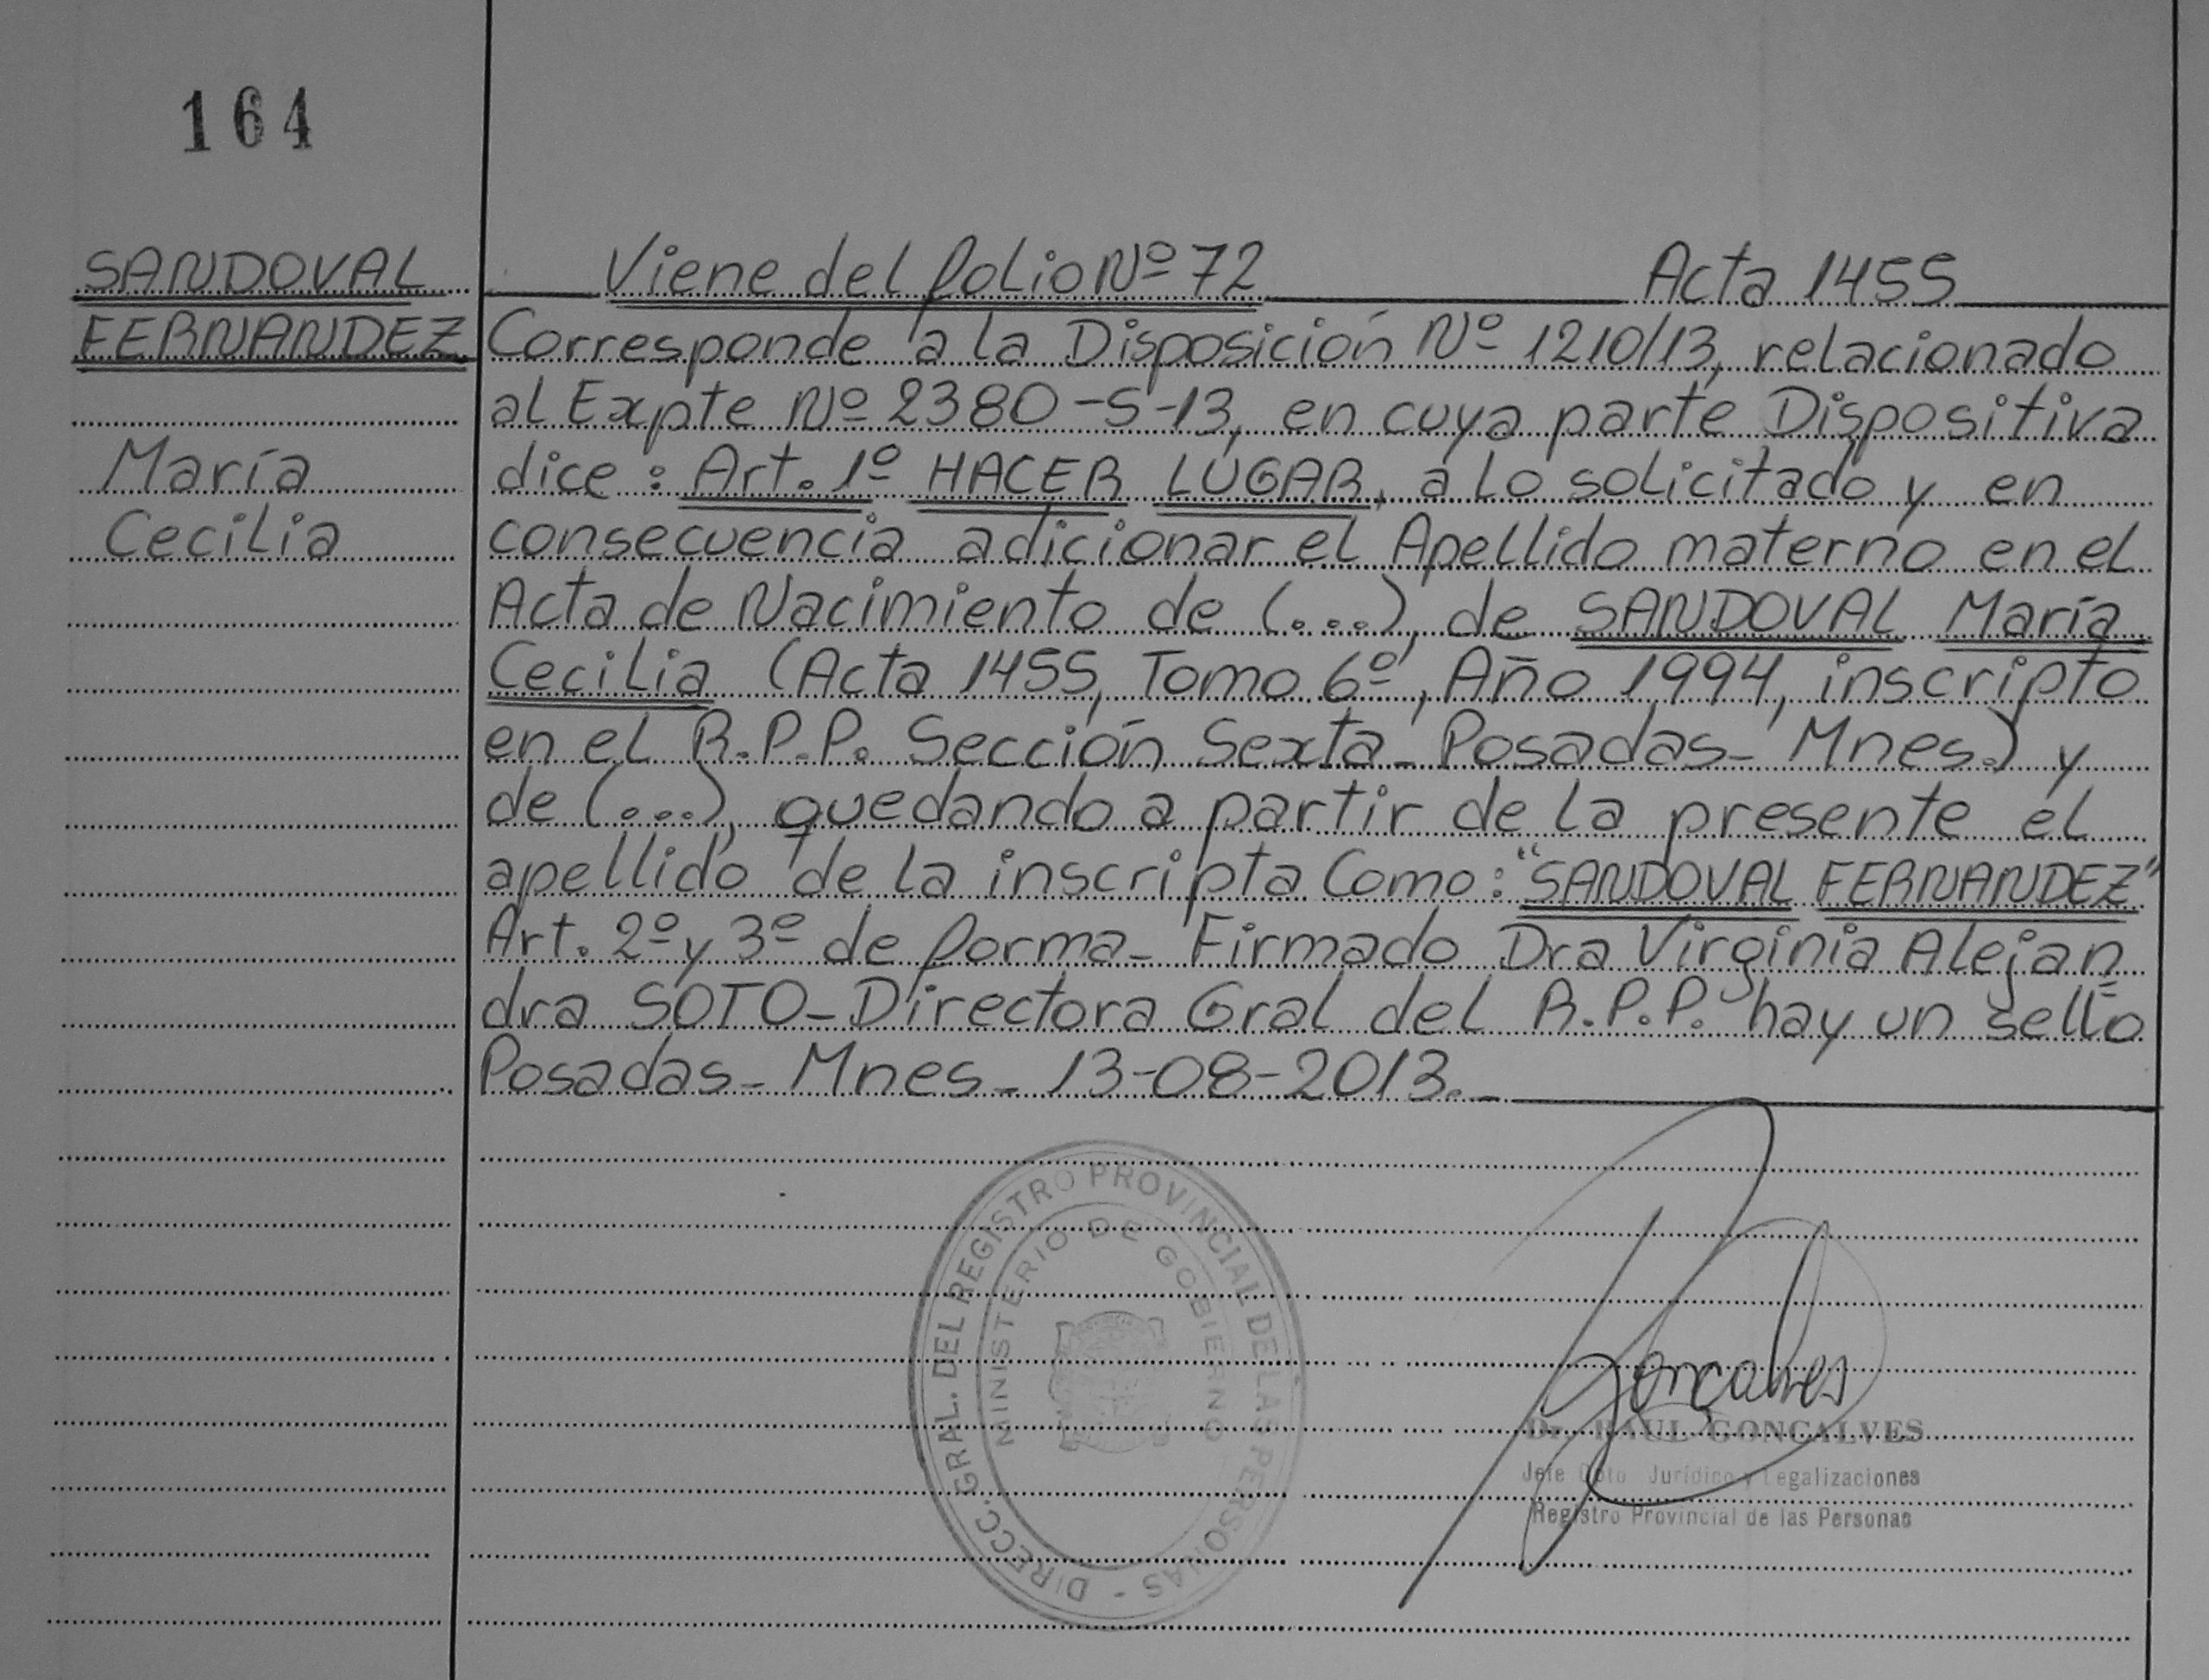 164
SANDOVAL
FERNANDEZ
María
Cecilia
Viene del folio Nº 72 Acta 1455
Corresponde a la Disposición Nº 1210/13, relacionado
al Expte Nº 2380-S-13, en cuya parte Dispositiva
dice: Art. 1º HACER LUGAR, a lo solicitado y en
consecuencia adicionar el Apellido materno en el
Acta de Nacimiento de (...), de SANDOVAL María
Cecilia (Acta 1455, Tomo 6º, Año 1994, inscripto
en el R.P.P. Sección Sexta- Posadas- Mnes.) y
de (...), quedando a partir de la presente el
apellido de la inscripta Como: "SANDOVAL FERNANDEZ"
Art. 2º y 3º de forma- Firmado Dra Virginia Alejan=
dra SOTO- Directora Gral del R.P.P. hay un sello
Posadas- Mnes- 13-08-2013.-
DIRECC. GRAL. DEL REGISTRO PROVINCIAL DE LAS PERSONAS -
MINISTERIO DE GOBIERNO
Gonçalves
Dr. RAUL GONCALVES
Jefe Dpto Jurídico y Legalizaciones
Registro Provincial de las Personas